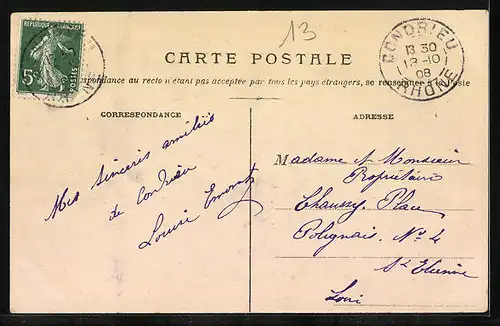 13
REPUBLIQUE FRANÇAISE
5c
POSTES
CARTE POSTALE
CONDRIEU
13 30
13-10
08
RHONE
pondance au recto n'étant pas acceptée par tous les pays étrangers, se renseigner à la Poste
CORRESPONDANCE
Mes sincères amitiés
de Condrieu
Louise
ADRESSE
Madame & Monsieur
Propriétaire
Place
Polignais. No 4
St Etienne
Loire